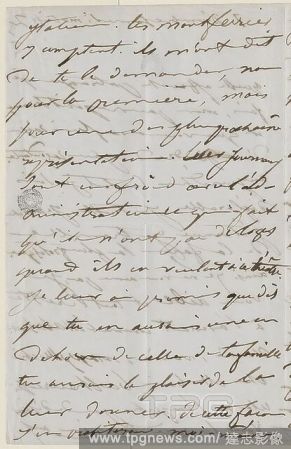 italien les montferrier
y comptent. ils m'ont dit
de te le demander, non
pour la première, mais
pour une des plus prochaines
représentation.
sont en froid avec l'ad
ministration ce qui fait
qu'ils n'ont pas de loges
quand ils en veulent
je leur ai promis que dès
que tu en aurais une en
dehors de celles de ta famille
tu aurais le plaisir de la
leur donner. de cette façon
TPG
www.tpgnews.com 達志影像